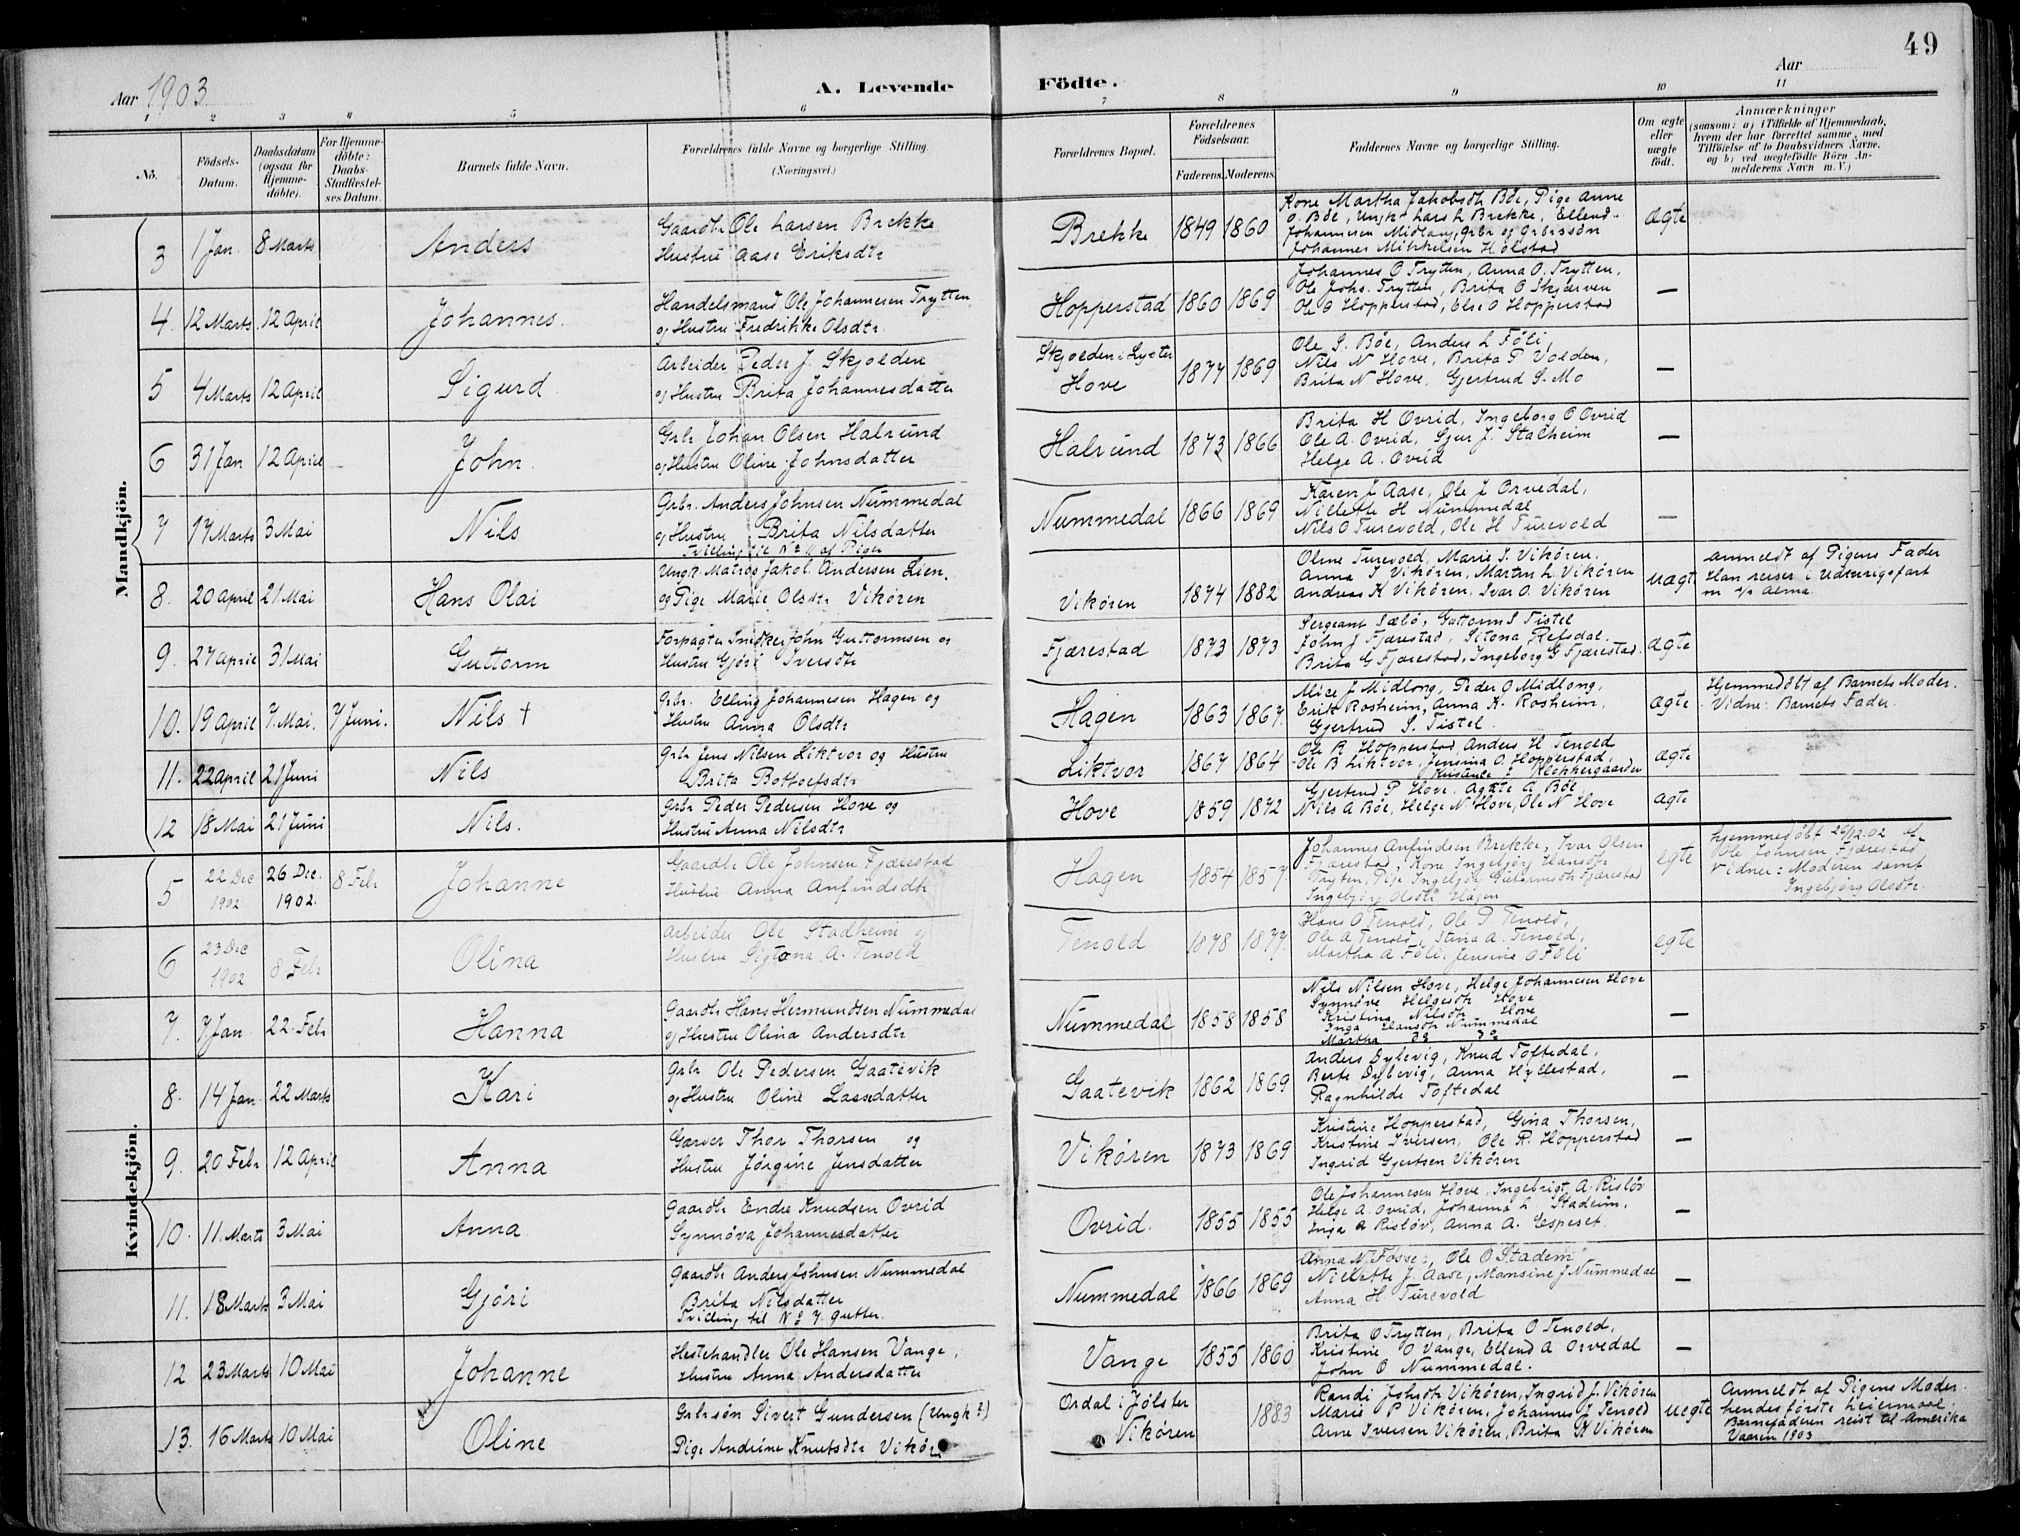 49
Aar 1903
A. Levende
Födte.
Aar
1 2 3 4 5 6 7 8 9 10 11
No.
Födsels-Datum.
Daabsdatum (ogsaa for Hjemmedöbte).
For Hjemmedöbte: Daabs-Stadfæstelses Datum.
Barnets fulde Navn.
Forældrenes fulde Navne og borgerlige Stilling. (Næringsvei.)
Forældrenes Bopæl.
Forældrenes Födselsaar.
Faderens. Moderens.
Faddernes Navne og borgerlige Stilling.
Om ægte eller uægte födt.
Anmærkninger
(saasom: a) i Tilfælde af Hjemmedaab, hvem der har forrettet samme, med Tilföielse af to Daabsvidners Navne, og b) ved uægtefödte Börn Anmelderens Navn m. V.)
Mandkjön.
3 1 Jan. 8 Marts Anders
Gaardbr Ole Larsen Brekke
Hustru Aase Eriksdtr
Brekke 1849 1860
Kone Martha Jakobsdtr Böe, Pige Anne
O. Böe, Ungk. Lars L Brekke, Ellend
Johannesen Midlang, grbr og Grbrssön
Johannes Mikkelsen Holstad
ægte
4. 12 Marts. 12 April Johannes.
Handelsmand Ole Johannesen Trytten
og Hustru Fredrikke Olsdtr.
Hopperstad 1860 1869
Johannes O Tryten, Anna O. Trytten,
Ole Johs. Trytten, Brita O Skjærven
Ole O Hopperstad, Else O Hopperstad
—
5 4 Marts 12 April Sigurd
Arbeider Peder J. Skjolden
og Hustru Brita Johannesdatter
Skjolden i Lyster
Hove 1877 1869
Ole S. Böe, Anders L Föli,
Nils N Hove, Brita P Volden,
Brita N Hove, Gjertrud S. Mo
—
6 31 Jan 12 April John.
Grbr Johan Olsen Halrund
og Hustru Oline Johnsdatter
Halrund 1873 1866
Brita H Ovrid, Ingeborg O Ovrid
Ole A. Ovrid, Sjur J. Stalheim
Helge A. Ovrid
—
7 17 Marts 3 Mai Nils
Grbr. Anders Johnsen Nummedal
og Hustru Brita Nilsdatter
Tvilling til No 11 af Piger
Nummedal 1866 1869
Karen J Aase, Ole J Orvedal,
Nillette H Nummedal
Nils O Turevold, Ole H Turevold
—
8. 20 April 21 Mai Hans Olai
Ungk. Matros Jakob Andersen Lien,
og Pige Marie Olsdtr Vikören
Vikören 1874 1882
Oline Turevold, Marie S. Vikören,
Anna I Vikören, Martin L Vikören
Andreas K Vikören, Ivar O. Vikören
uægte
anmeldt af Pigens Fader
Han reiser i Udenrigsfart
m s/s Alma
9. 27 April 31 Mai Guttorm
Forpagter John Guttormsen og
Hustru Gjöri Iversdtr
Fjærestad 1873 1873
Sergeant Sæbö, Guttorm S Tistel
John J Fjærestad, Sitona Refsdal.
Brita G Fjærestad, Ingeborg G Fjærestad.
ægte
10. 19 April 7. Mai. 7 Juni. Nils †
Grbr. Elling Johannesen Hagen og
Hustru Anna Olsdtr
Hagen 1863 1867.
Alice J Midlong, Peder O Midlong,
Erik Rosheim, Anna K. Rosheim,
Gjertrud S. Tistel
ægte
Hjemmedöbt af Barnets Moder.
Vidne: Barnets Fader.
11. 22 April 21 Juni Nils
Grbr Jens Nilsen Liktvor og Hustru
Brita Botholfsdtr
Liktvor 1867 1864
Ole R Hopperstad, Anders H Tenold
Ole B Liktvor, Jensina O. Hopperstad,
Klokkergaarden
ægte
12 18 Mai 21 Juni Nils.
Grbr Peder Pedersen Hove og
Hustru Anna Nilsdtr
Hove 1859 1872
Gjertrud P Hove, Agate A Böe,
Nils A Böe, Helge N Hove, Ole N Hove
ægte
Kvindekjön.
5 22 Dec 1902 26 Dec. 1902. 8 Febr Johanne
Gaardbr Ole Johnsen Fjærestad
Hustru Anna Anfindsdtr
Hagen 1854 1857.
Johannes Anfindsen Brekke, Ivar Olsen
Fjærestad, Kone Ingebjörg Hansdtr
Tryten, Pige Ingebjörg Guttormsdtr Fjærestad
Ingebjörg Olsdtr Hagen
egte
hjemmedöbt 26/12.02 af
Ole Johnsen Fjærestad
Vidner: Moderen samt
Ingebjörg Olsdtr.
6 23 Dec 1902 8 Febr Olina
Arbeider Ole Stadheim og
Hustru Sigtona A. Tenold
Tenold 1878 1877.
Hans O Tenold, Ole P Tenold,
Ole A Tenold, Stina A. Tenold,
Martha A Föli, Jensine O Föli
egte
7. 7 Jan 22. Febr Hanna
Gaardbr Hans Hermundsen Nummedal
og Hustru Olina Andersdtr
Nummedal 1858 1858
Nils Nilsen Hove, Helge Johannesen Hove
Synnöve Helgesdtr Hove
Kristina Nilsdtr Hove
Inga Hansdtr Nummedal
Martha do do
—
8. 14 Jan. 22 Marts Kari
Grbr Ole Pedersen Gaatevik
og Hustru Oline Lassedatter
Gaatevik 1862 1869
Anders Dylevig, Knud Toftedal,
Berte Dylevig, Anna Hyllestad,
Ragnhilde Toftedal
—
9. 20 Febr 12 April Anna
Garver Thor Thorsen og
Hustru Jörgine Jensdatter
Vikören 1873 1869
Kristine Hopperstad, Gina Thorsen,
Kristine Iversen, Ole R. Hopperstad
Ingrid Gjertsen Vikören
—
10. 11. Marts 3 Mai Anna
Gaardbr Endre Knudsen Ovrid
Synnöva Johannesdatter
Ovrid. 1855 1855
Ole Johannesen Hove, Ingebrigt A. Rislöv
Helge A Ovrid, Johanna L Stadeim,
Inga A Rislöv, Anna A. Espeset.
—
11. 18 Marts 3 Mai Gjöri
Gaardbr Anders Johnsen Nummedal
Brita Nilsdatter
Tvilling til No 7. Gutter.
Nummedal 1866 1869
Anna N Fosse, Ole O Stadem
Nillette J. Aase, Mansine J Nummedal
Anna H Turevold
—
12 23 Marts 10 Mai Johanne
Hestehandler Ole Hansen Vange,
Hustru Anna Andersdatter
Vange 1855 1860
Brita O Trytten, Brita O Tenold,
Kristine O Vange, Ellend A Orvedal
John O Nummedal.
—
13. 16 Marts 10 Mai Oline
Grbrsön Sivert Gundersen (Ungk?)
Pige Andrine Knutsdtr Vikören
Ordal i Jölster
Vikören 1883
Randi Johsdtr Vikören, Ingrid J. Vikören
Maris P Vikören, Johannes J Tenold
Arne Iversen Vikören, Brita K Vikören
uegte
Anmeldt af Pigens Moder.
hendes förste Leiermaal.
Barnefaderen reist til Amerika
Vaaren 1903